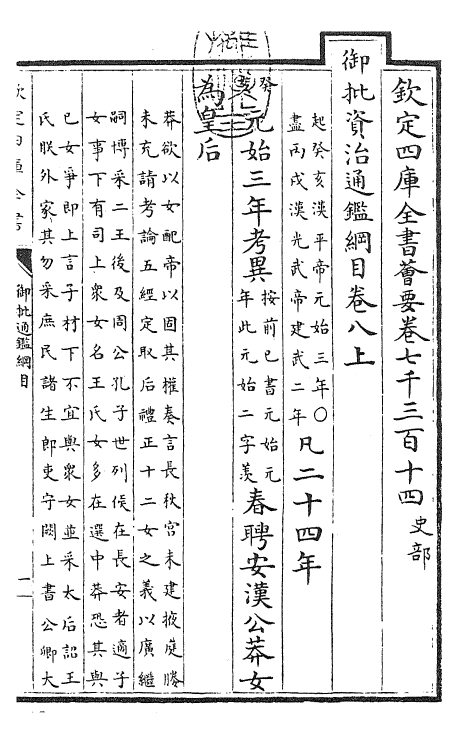 欽定四庫全書薈要卷七千三百十四 史部
御批資治通鑑綱目卷八上
起癸亥漢平帝元始三年○
盡丙戌漢光武帝建武二年
凡二十四年
癸亥
元始三年考異
按前已書元始元
年此元始二字羨
春聘安漢公莽女
為皇后
莽欲以女配帝以固其權奏言長秋宮未建掖庭媵
未充請考論五經定取后禮正十二女之義以廣繼
嗣博采二王後及周公孔子世列侯在長安者適子
女事下有司上衆女名王氏女多在選中莽恐其與
已女爭即上言子材下不宜與衆女並采太后詔王
氏朕外家其勿采庶民諸生郎吏守闕上書公卿大
欽定四庫全書
御批通鑑綱目
一